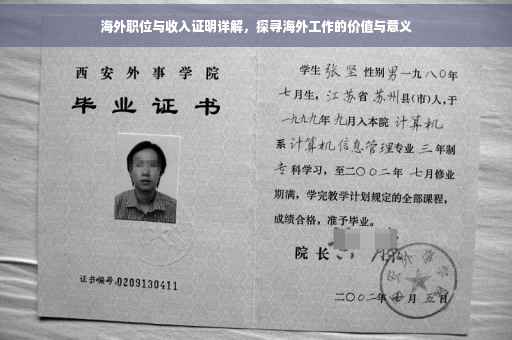 海外职位与收入证明详解，探寻海外工作的价值与意义
西安外事学院
毕业证书
证书编号:0209130411
学生张坚性别男一九八〇年
七月生，江苏省苏州县(市)人,于
一九九九年九月入本院计算机
系计算机信息管理专业三年制
专科学习，至二〇〇二年七月修业
期满，学完教学计划规定的全部课程，
成绩合格，准予毕业。
院长
二〇〇二年 月五日